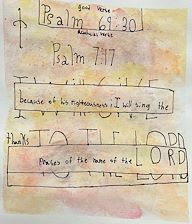 good verse
Psalm 69:30
Random verse
Psalm 7:17
I WILL GIVE
because of his righteousness; I will sing the
thanks TO THE LORD
praises of the name of the LORD